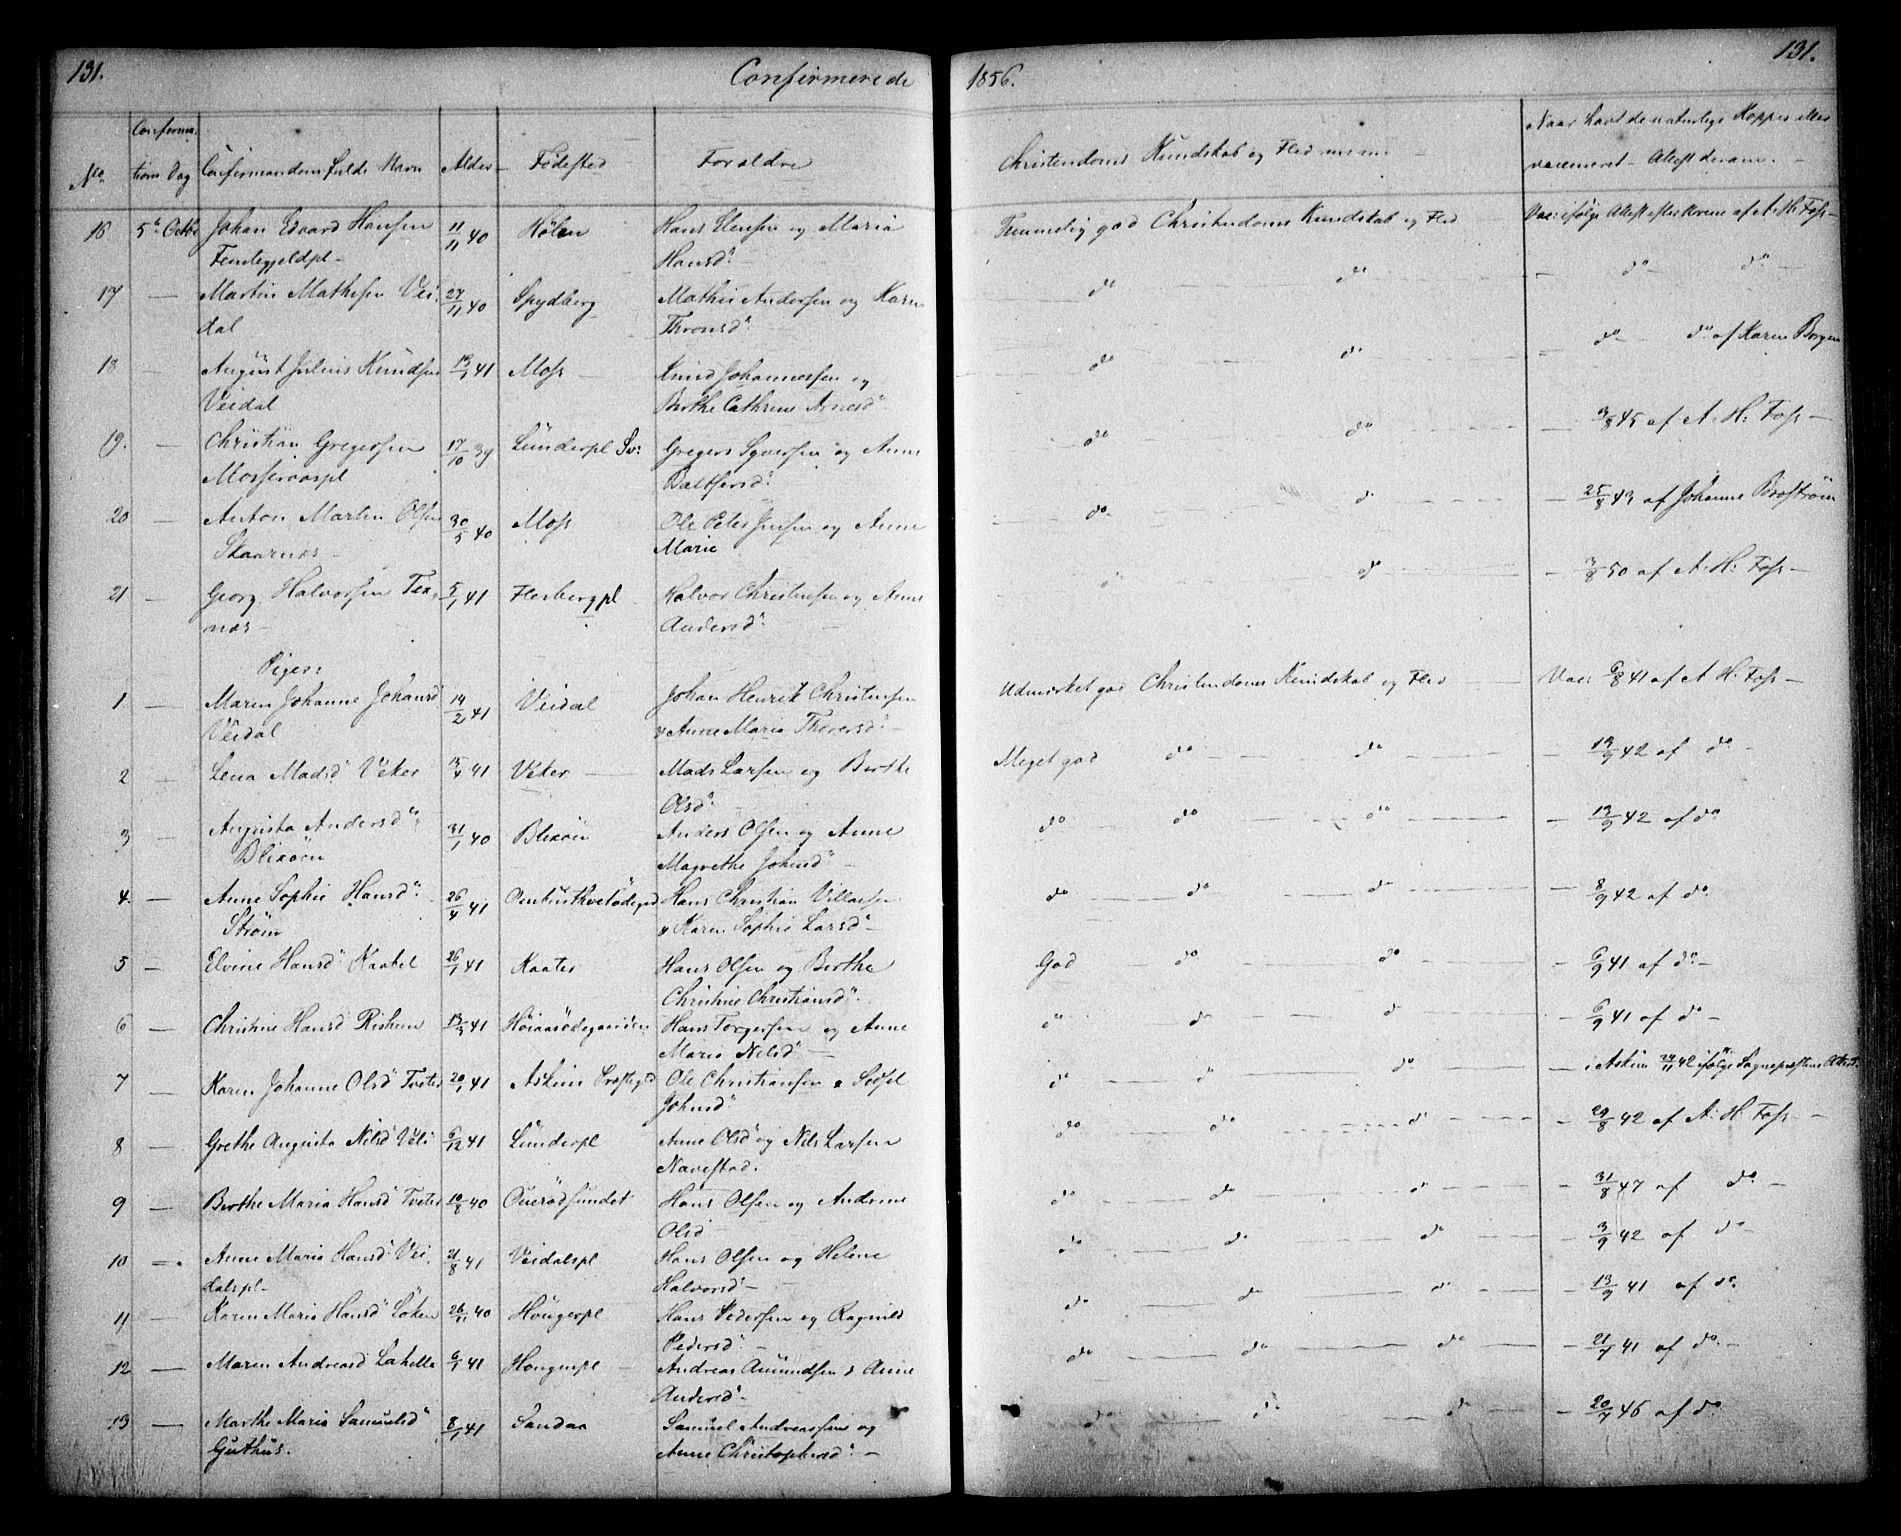 131.
Confirmerede
1856.
131.
No
Confirma-
tions Dag
Confirmandens fulde Navn
Alder
Fødested
Forældre
Christendoms Kundskab og Flid
Naar havt de naturlige Kopper eller
vaccineret - Attest derom. -
16 5te Octbr Johan Edvard Hansen 11/11 40 Hølen Hans Hensen og Maria Temmelig god Christendoms Kundskab og Flid Vac: ifølge Attest af A. H: Foss -
Hansd:
17 — Martin Mathisen Vei- 27/11 40 Spydberg Mathis Andersen og Karen do do do do
dal Thronsd:
18 — August Julius Knudsen 19/1 41 Moss - Knud Johannessen og do do do do af Karen Borgen
Veidal Berthe Cathrine Arnesd:
19. — Christian Gregersen 17/10 39 Lunderpl Sv: Gregers Syversen og Anne do do 3/8 45 af A. H: Foss -
Mosseroospl Baltsersd:
20 — Anton Martin Olsen 30/5 40 Moss Ole Peter Jensen og Anne do do - 25/8 43 af Johanne Broström
Skaarnæs - Marie
21 — Georg Halvorsen Tex- 5/1 41 Florbergpl Halvor Christensen og Anne do do - 3/8 50 af A. H: Foss -
næs - Andersd:
Piger:
1 — Maren Johanne Johansd 14/2 41 Veidal Johan Henrik Christensen Udmærket god Christendoms Kundskab og Flid Vac: 6/8 41 af A. H: Foss -
Veidal & Anne Maria Thoresd:
2 — Lena Madsd Veker 15/4 41 Veker Mads Larsen og Berthe Meget god do do - 19/9 42 af do -
Olsd:
3 — Augusta Andersd: 31/1 40 Blixøen Anders Olsen og Anne do do do - 19/9 42 af do
Blixøen Magrethe Johnsd -
4. — Anne Sophie Hansd: 26/4 41 Hans Christian Villassen do do do - 8/9 42 af do
Strøm & Karen Sophie Larsd -
5 — Elvine Hansd Kaatel 26/1 41 Kaater Hans Olsen og Berthe God do do - 6/9 41 af do -
Christine Christiansd:
6 — Christine Hansd 13/3 41 Høiaasødegaarden Hans Torgersen og Anne do do do - 6/9 41 af do -
Maria Nilsd -
7 — Karen Johanne Olsd Tveter 20/1 41 Askim Præstegld Ole Christiansen & Johnsd: do do do - i Askim 24/11 42 ifølge Sognepræstens Attest
8 — Grethe Augusta Nilsd 6/12 41 Lunderpl Anne Olsd og Nils Larsen do do do - 29/8 42 af A. H. Foss -
Navestad.
9 — Berthe Maria Hansd Tveter 10/8 40 Hans Olsen og Andrine do do do - 31/8 47 af do -
Olsd
10 — Anne Maria Hansd Vei- 21/8 41 Veidalspl Hans Olsen og Helene do do do - 3/9 42 af do
dalspl - Halvorsd -
11 — Karen Maria Hansd Løken 26/11 40 Hougerpl Hans Pedersen og Ragnild do do do - 19/9 41 af do.
Pedersd -
12 — Maren Andreasd Lahella 6/1 41 Hougenpl - Andreas Amundsen & Anne do do do - 21/7 41 af do -
Andersd -
13 — Marthe Maria Samuelsd 8/1 41 Sandaa Samuel Andreassen og do do do - 20/7 46 af do
Guthus. Anne Christophersd: -